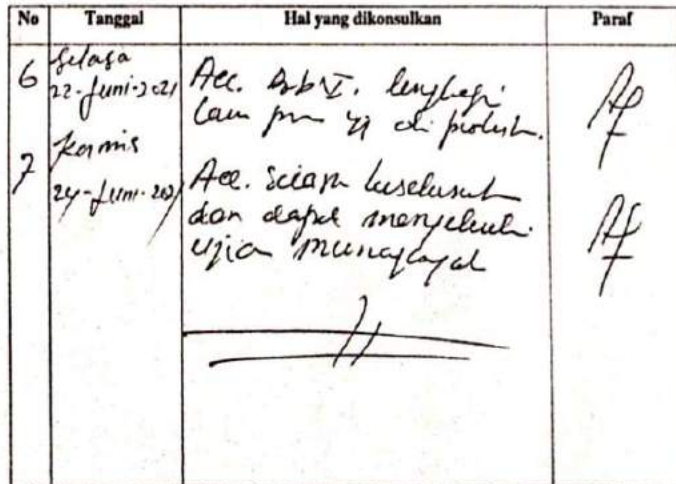 No Tanggal Hal yang dikonsulkan Paraf
6 Selasa
22-Juni-2021 Acc. Bab V. lengkapi
lam yg di
7 Kamis
24-Juni-2021 Acc. secara keseluruh
dan dapat mengikuti
ujian munaqasyah